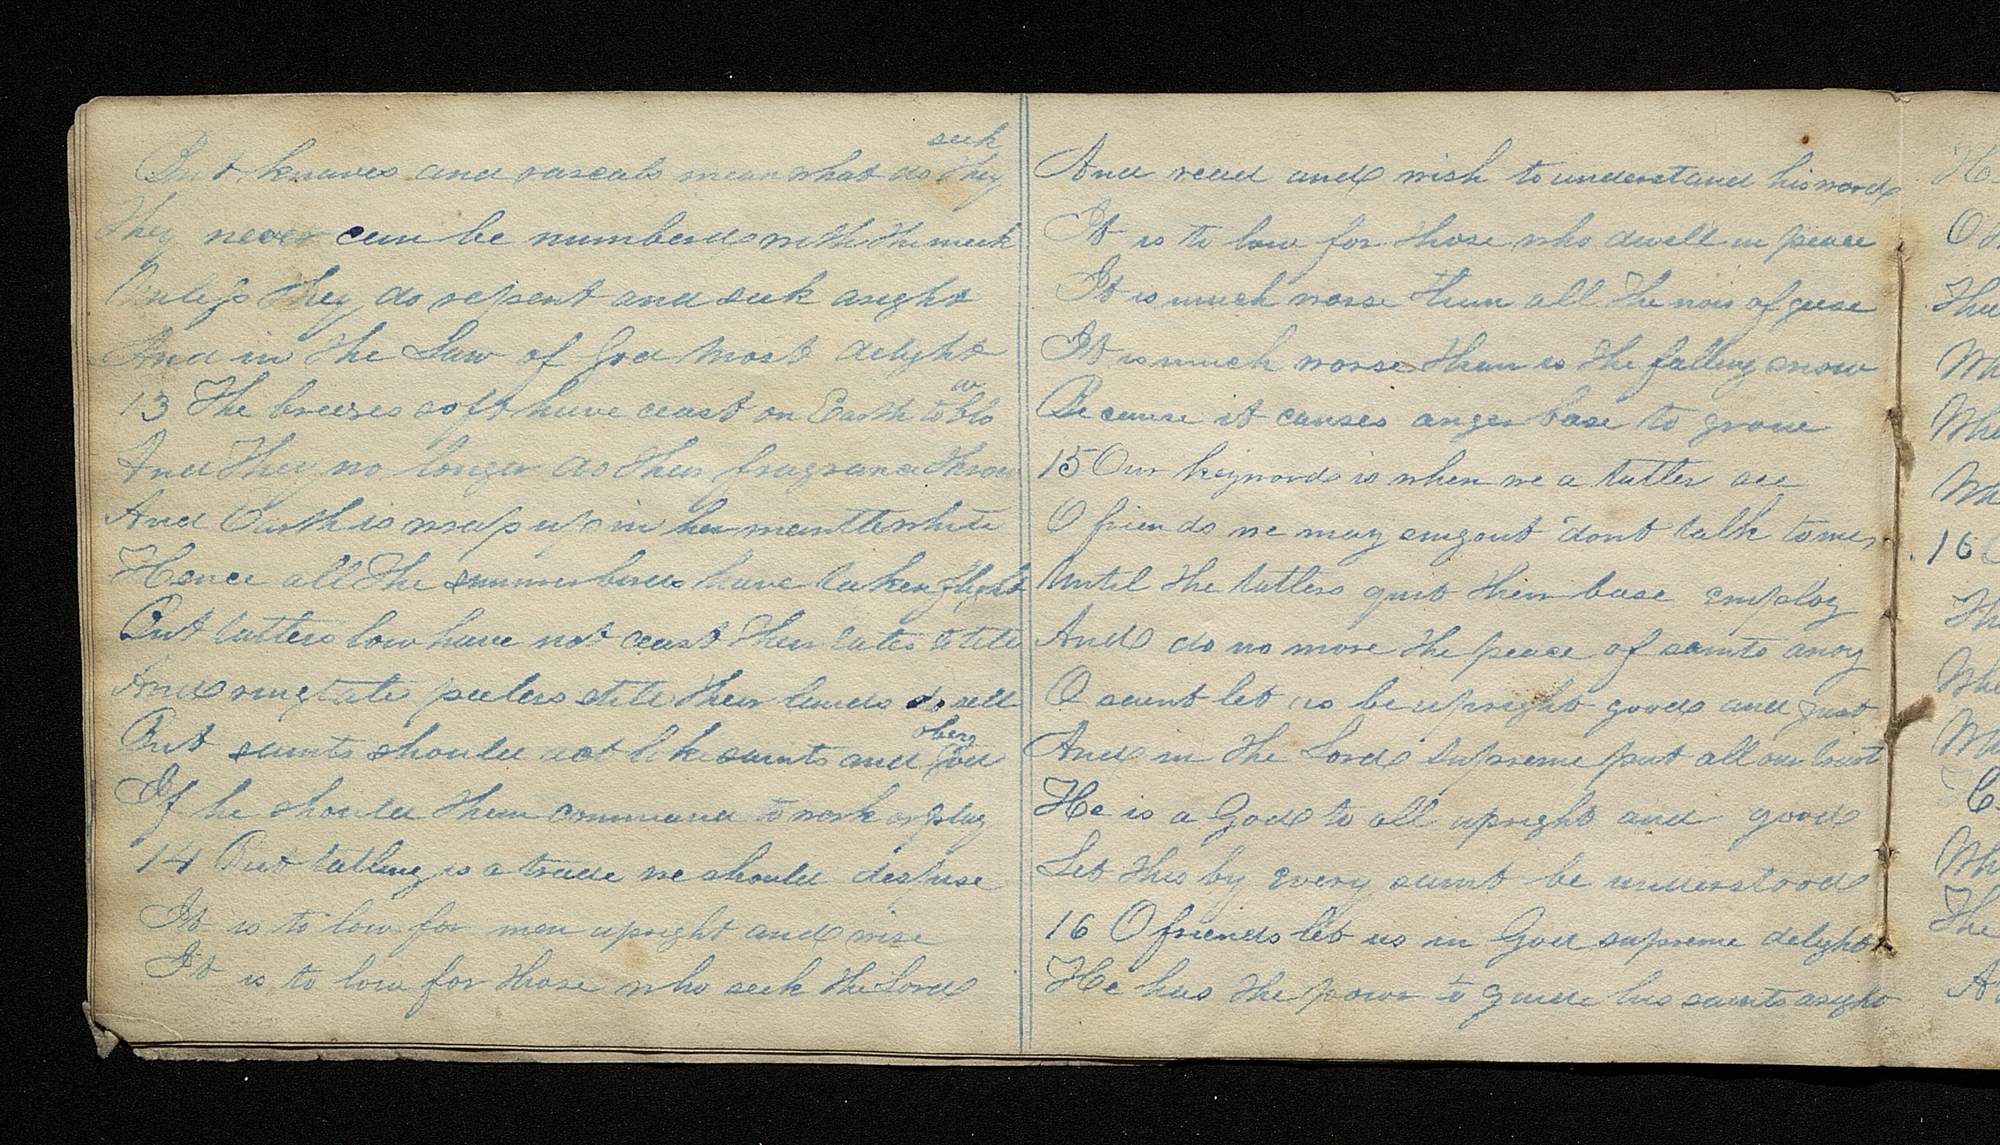 But knaves and rascals mean what do they seek
They never can be numberd with the meek
Unless they do repent and seek aright
And in the Law of God most delight
13 The breezes soft have ceast on Earth to blow
And they no longer do their fragrance throw
And Earth is wrap up in her mantle white
Hence all the summer birds have taken flight
But tatlers low have not ceast their tales to tell
And ringtale peelers still their lands do sell
But saints should act like saints and God obey
If he should them command to work or play
14 But tatling is a trade we should despise
It is to low for men upright and wise
It is to low for those who seek the Lord
And read and wish to understand his word
It is to low for those who dwell in peace
It is much worse than all the nois of geese
It is much worse than is the falling snow
Because it causes anger base to grow
15 Our keyword is when we a tatler see
O friends we may sing out dont talk to me,
Until the tatlers quit their base employ
And do no more the peace of saints anoy
O saint let us be upright good and just
And in the Lord supreme put all our trust
He is a God to all upright and good
Let this by every saint be understood
16 O friends let us in God supreme delight
He has the power to guide his saints aright
16